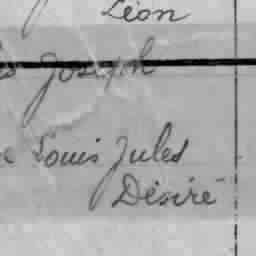 Léon
Joseph
Louis Jules
Désiré